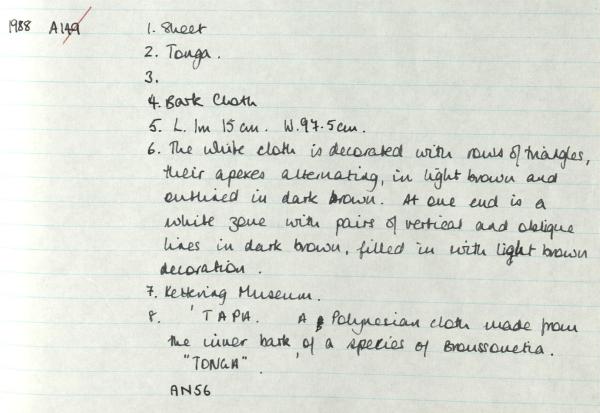 1988 A149 1. Sheet
2. Tonga.
3.
4. Bark Cloth
5. L. 1m 15cm. W. 97.5cm.
6. The white cloth is decorated with rows of triangles,
their apexes alternating, in light brown and
outlined in dark brown. At one end is a
white zone with pairs of vertical and oblique
lines in dark brown, filled in with light brown
decoration.
7. Kettering Museum.
8. 'TAPA. A Polynesian cloth made from
the inner bark of a species of Broussonetia.
"TONGA" '
AN56